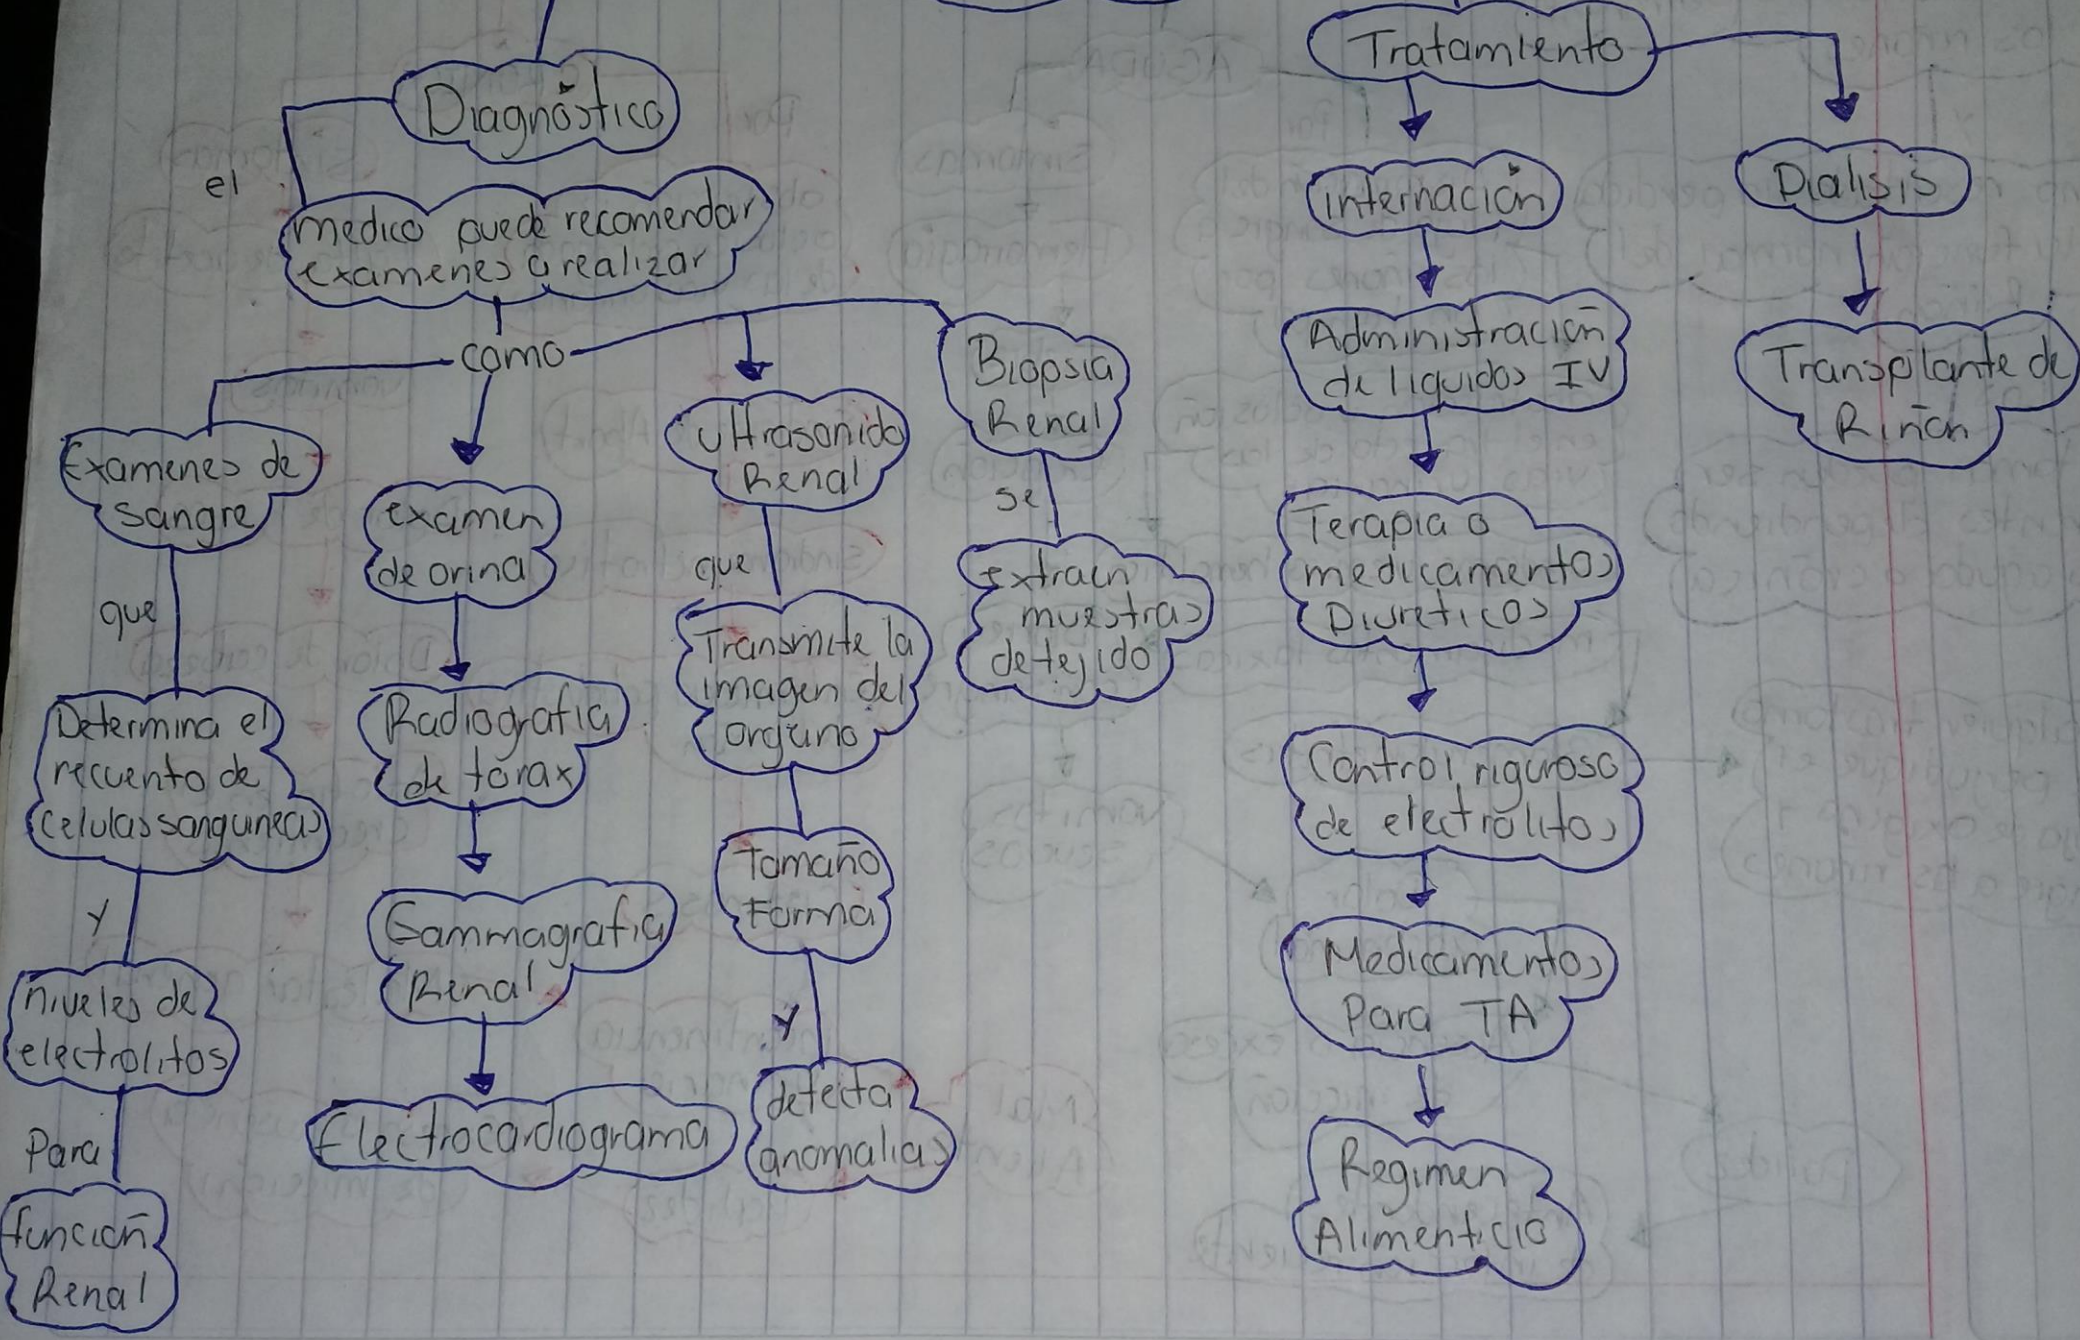 Diagnóstico
el
medico puede recomendar
examenes a realizar
como
Examenes de
sangre
que
Determina el
recuento de
celulas sanguineas
Y
niveles de
electrolitos
Para
función
Renal
examen
de orina
Radiografia
de tórax
Gammagrafia
Renal
Electrocardiograma
Ultrasonido
Renal
que
Transmite la
imagen del
organo
Tamaño
Forma
Y
detecta
anomalias
Biopsia
Renal
se
extraen
muestras
de tejido
Tratamiento
internación
Administración
de liquidos IV
Terapia o
medicamentos
Diureticos
Control riguroso
de electrólitos
Medicamentos
Para TA
Regimen
Alimenticio
Dialisis
Transplante de
Riñon